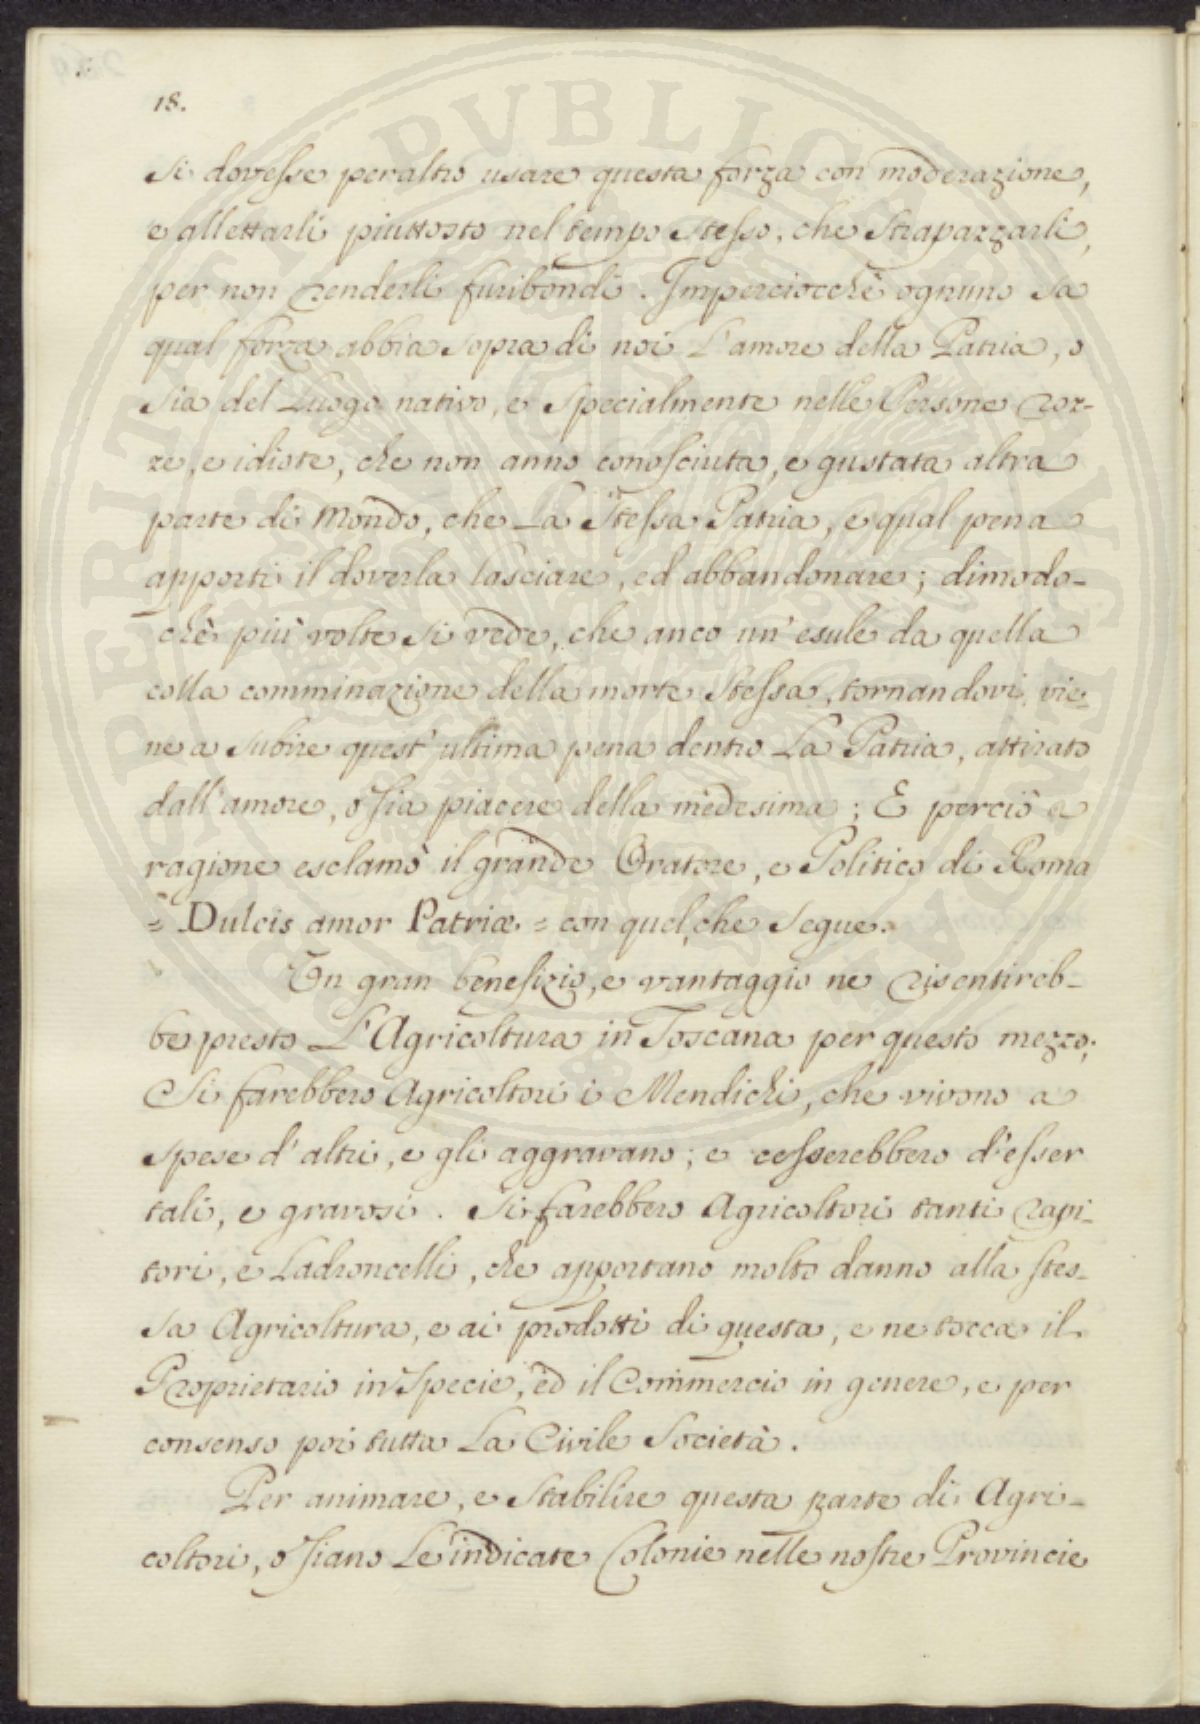 18.
si dovesse peraltro usare questa forza con moderazione,
e allettarli piuttosto nel tempo stesso, che strapazzarli,
per non renderli furibondi. Imperciocchè ognuno sa
qual forza abbia sopra di noi L'amore della Patria, o
sia del Luogo nativo, e specialmente nelle Persone roz-
ze, e idiote, che non anno conosciuta, e gustata altra
parte di Mondo, che La stessa Patria, e qual pena
apporti il doverla lasciare, ed abbandonare; dimodo-
chè più volte si vede, che anco un'esule da quella
colla comminazione della morte stessa, tornandovi, vie-
ne a subire quest'ultima pena dentro La Patria, attirato
dall'amore, o sia piacere della medesima; E perciò a
ragione esclamò il grande Oratore, e Politico di Roma
= Dulcis amor Patriæ = con quel, che segue.
Un gran benefizio, e vantaggio ne risentireb-
be presto L'Agricoltura in Toscana per questo mezzo;
Si farebbero Agricoltori i Mendichi, che vivono a
spese d'altri, e gli aggravano; e cesserebbero d'esser
tali, e gravosi. Si farebbero Agricoltori tanti rapi-
tori, e Ladroncelli, che apportano molto danno alla stes-
sa Agricoltura, e ai prodotti di questa, e ne tocca il
Proprietario in specie, ed il Commercio in genere, e per
consenso poi tutta La Civile Società.
Per animare, e stabilire questa parte di Agri-
coltori, o siano Le indicate Colonie nelle nostre Provincie